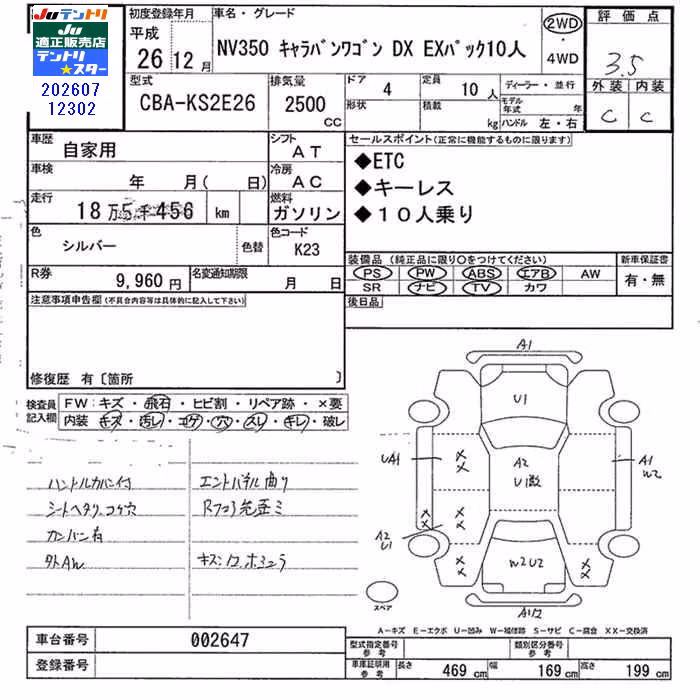 Juテントリ
JU
適正販売店
テントリ★スター
202607
12302
初度登録年月
平成
26 12 月
車名・グレード
NV350 キャラバンワゴン DX EXパック10人
2WD
・
4WD
評価点
3.5
外装 内装
C C
型式
CBA-KS2E26
排気量
2500
CC
ドア
4
形状
定員
10 人
積載
kg
ディーラー・並行
モデル年式 年
ハンドル 左・右
車歴
自家用
シフト
AT
車検
年 月( 日)
冷房
AC
走行
18 万5千456 km
燃料
ガソリン
色
シルバー
色替
色コード
K23
R券
9,960 円
名変通知期限
月 日
セールスポイント(正常に機能するものに限ります)
◆ETC
◆キーレス
◆10人乗り
装備品(純正品に限り○をつけてください)
PS PW ABS エアB AW
SR ナビ TV カワ
新車保証書
有・無
後日品
注意事項申告欄(不具合内容等は具体的に記入して下さい)
修復歴 有〔箇所 〕
検査員記入欄
FW:キズ・飛石・ヒビ割・リペア跡・×要
内装 キズ・汚レ・コゲ・穴・スレ・キレ・破レ
ハンドルカバー付
シートヘタリ、コゲ穴
カンバン有
タトAW
エントパネル曲り
Rフロア先歪ミ
A1
U1
UA1
A2
U1
A2
A1
W2
W2U2
A1
スペア
A-キズ E-エクボ U-凹み W-補修跡 S-サビ C-腐食 XX-交換済
車台番号
002647
登録番号
型式指定番号
参考
類別区分番号
参考
車庫証明用
参考
長さ 469 cm 幅 169 cm 高さ 199 cm